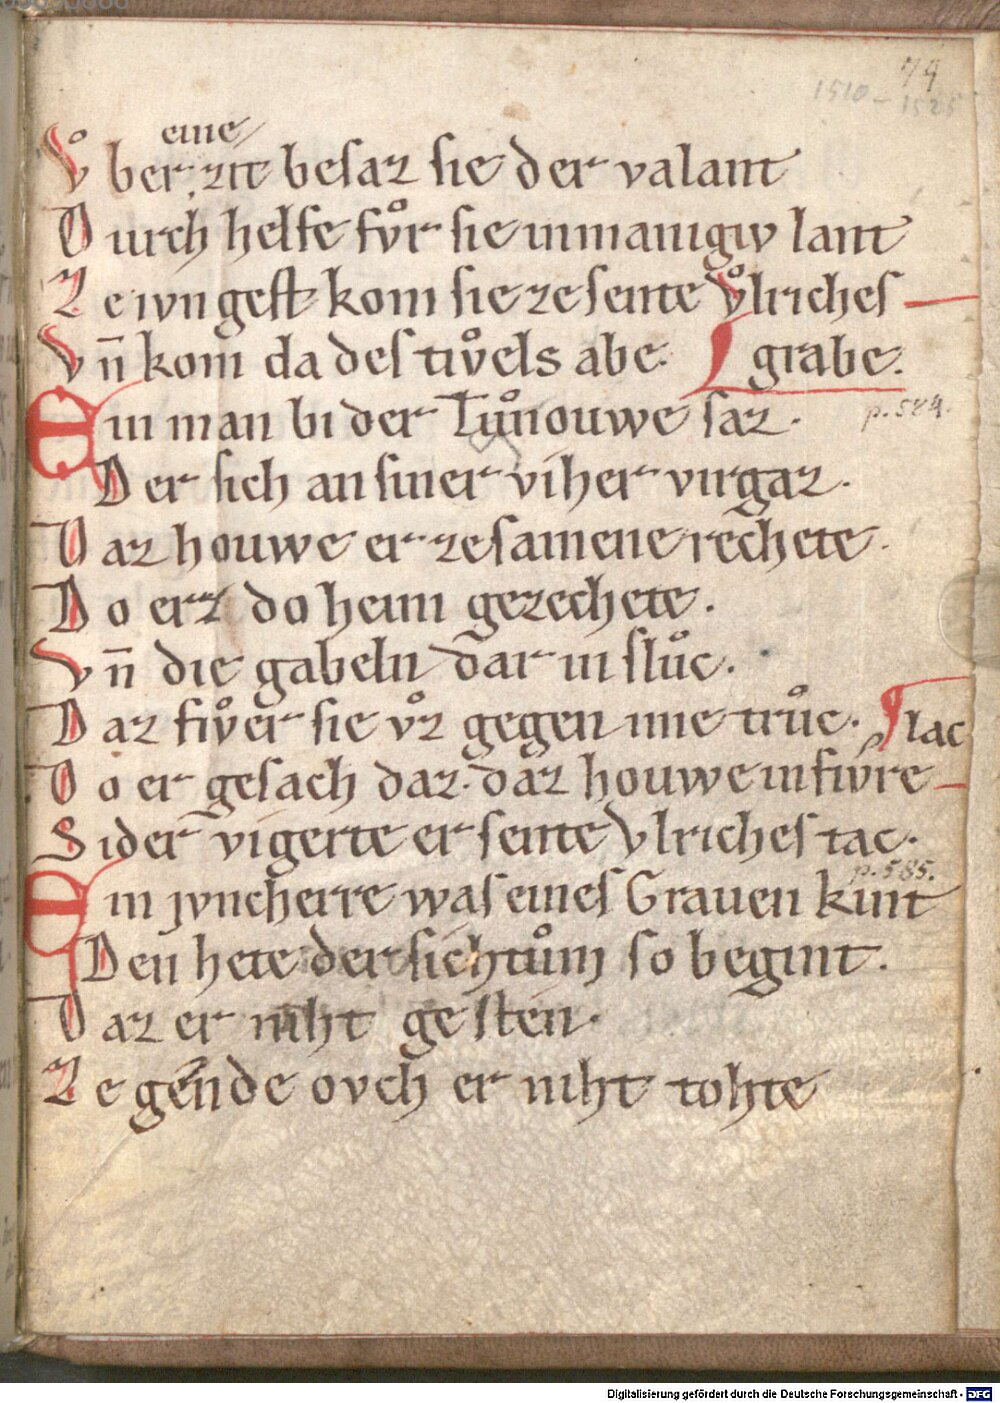 79
1510 – 1525
eine
Vͦ ber zit besaz sie der valant
D urch helfe fvͦr sie inmanigiv lant
Z e ivngest kom sie ze sente vͦlriches
vn̄ kom da des tivͦels abe. grabe.
Ein man bi der Tuͦnouwe saz. p. 584.
Der sich an siner viher virgaz.
D az houwe er zesamene rechete.
D o erz do heim gezechete.
Vn̄ die gabeln dar in sluͦc.
D az fivͦer sie vͦz gegen ime truͦc. lac
D o er gesach daz. daz houwe infivre
S ider vigerte er sente Vlriches tac.
p. 585.
Ein jvncherre was eines Grauen kint
Den hete der sichtuͦm so begint.
D az er niht gesten.
Z e gende ovch er niht tohte
Digitalisierung gefördert durch die Deutsche Forschungsgemeinschaft - DFG